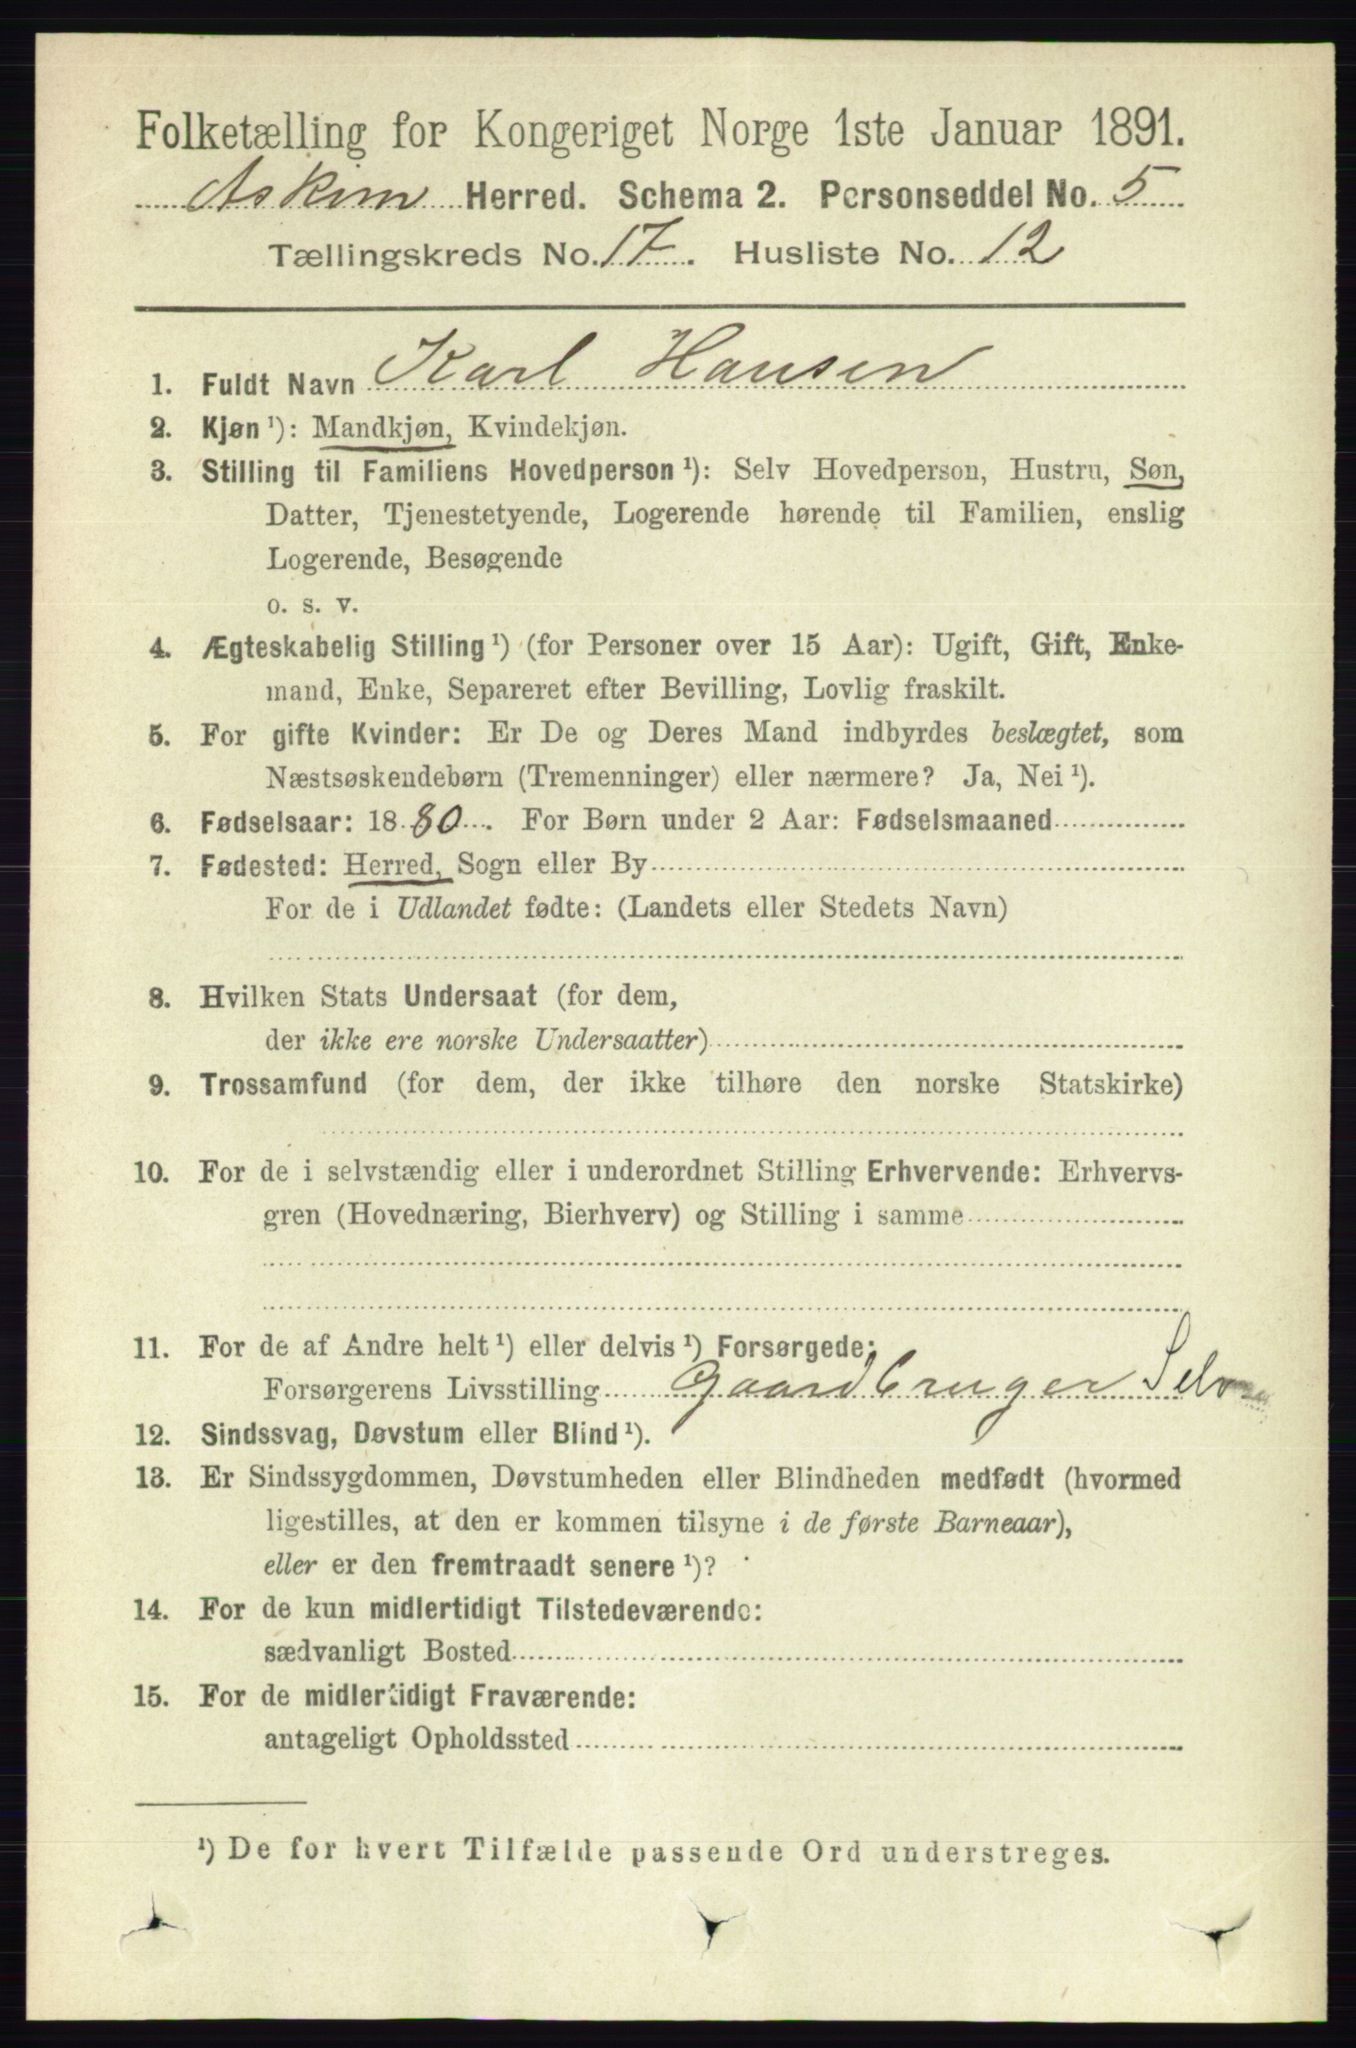 Folketælling for Kongeriget Norge 1ste Januar 1891.
Askim Herred. Schema 2. Personseddel No. 5
Tællingskreds No. 17. Husliste No. 12
1. Fuldt Navn Karl Hansen
2. Kjøn ¹): Mandkjøn, Kvindekjøn.
3. Stilling til Familiens Hovedperson ¹): Selv Hovedperson, Hustru, Søn,
Datter, Tjenestetyende, Logerende hørende til Familien, enslig
Logerende, Besøgende
o. s. v.
4. Ægteskabelig Stilling ¹) (for Personer over 15 Aar): Ugift, Gift, Enke-
mand, Enke, Separeret efter Bevilling, Lovlig fraskilt.
5. For gifte Kvinder: Er De og Deres Mand indbyrdes beslægtet, som
Næstsøskendebørn (Tremenninger) eller nærmere? Ja, Nei ¹).
6. Fødselsaar: 1880. For Børn under 2 Aar: Fødselsmaaned
7. Fødested: Herred, Sogn eller By
For de i Udlandet fødte: (Landets eller Stedets Navn)
8. Hvilken Stats Undersaat (for dem,
der ikke ere norske Undersaatter)
9. Trossamfund (for dem, der ikke tilhøre den norske Statskirke)
10. For de i selvstændig eller i underordnet Stilling Erhvervende: Erhvervs-
gren (Hovednæring, Bierhverv) og Stilling i samme
11. For de af Andre helt ¹) eller delvis ¹) Forsørgede:
Forsørgerens Livsstilling Gaardbruger
12. Sindssvag, Døvstum eller Blind ¹).
13. Er Sindssygdommen, Døvstumheden eller Blindheden medfødt (hvormed
ligestilles, at den er kommen tilsyne i de første Barneaar),
eller er den fremtraadt senere ¹)?
14. For de kun midlertidigt Tilstedeværende:
sædvanligt Bosted
15. For de midlertidigt Fraværende:
antageligt Opholdssted
¹) De for hvert Tilfælde passende Ord understreges.